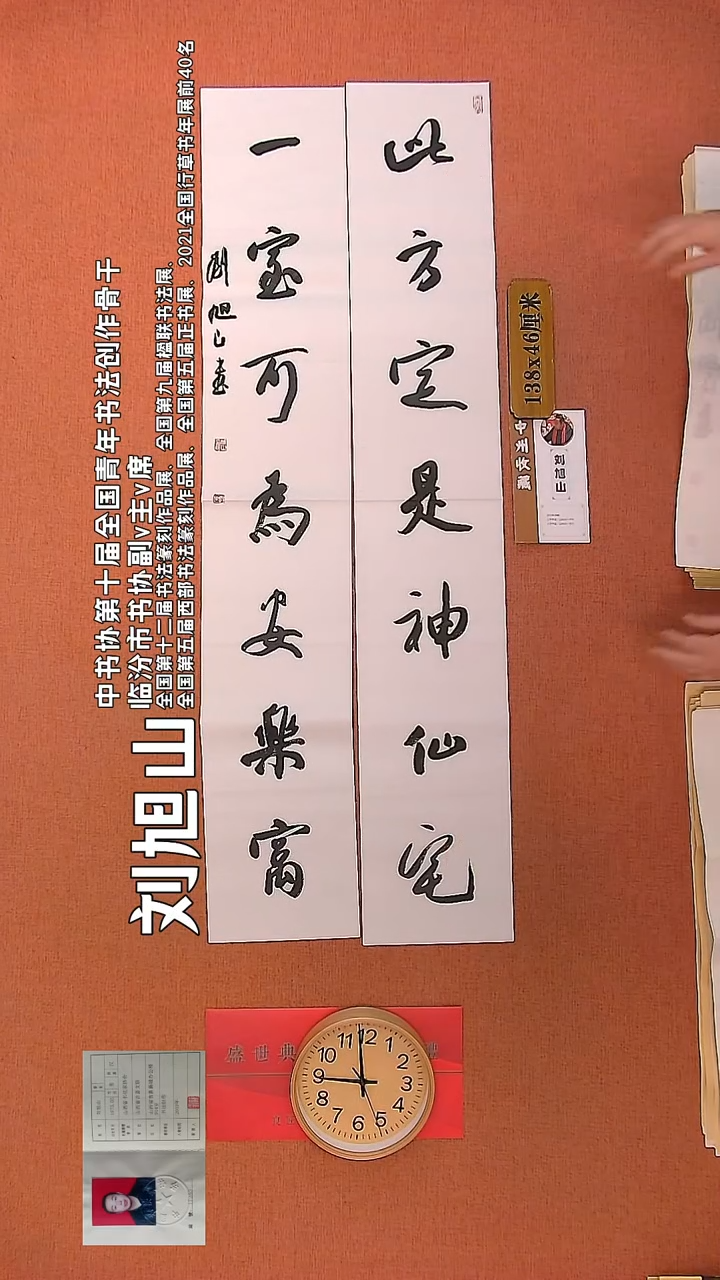 此方定是神仙宅
一室可為安樂富
劉旭山書
刘旭山
中书协第十届全国青年书法创作骨干
临汾市书协副v主v席
全国第十二届书法篆刻作品展、全国第九届楹联书法展、
全国第五届西部书法篆刻作品展、全国第五届正书展、2021全国行草书年展前40名
138x46厘米
刘旭山
盛世典
12
1
2
3
4
5
6
7
8
9
10
11